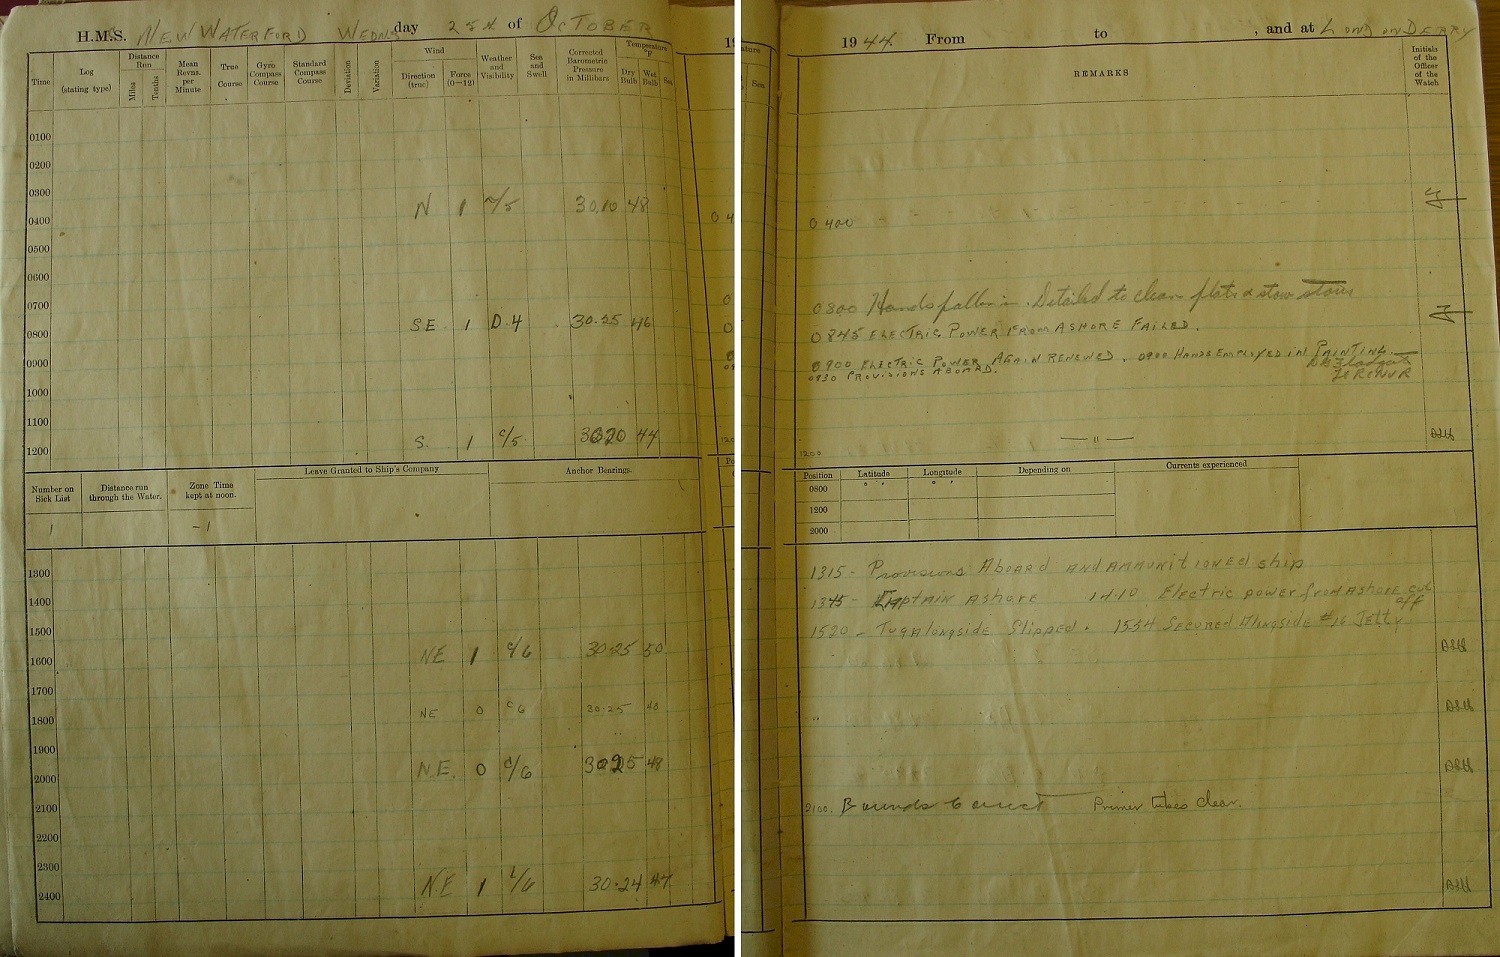 H.M.S. NEW WATERFORD WEDNS day 25th of OCTOBER
Time
Log (stating type)
Distance Run
Miles
Tenths
Mean Revns. per Minute
True Course
Gyro Compass Course
Standard Compass Course
Deviation
Variation
Wind
Direction (true)
Force (0—12)
Weather and Visibility
Sea and Swell
Corrected Barometric Pressure in Millibars
Temperature °F
Dry Bulb
Wet Bulb
Sea
0100
0200
0300
0400 N 1 30.10 48
0500
0600
0700
0800 SE 1 D.4 30.25 46
0900
1000
1100
1200 S. 1 c/5 3020 44
Number on Sick List
Distance run through the Water.
Zone Time kept at noon.
Leave Granted to Ship's Company
Anchor Bearings.
1 -1
1300
1400
1500
1600 NE 1 c/6 30.25 50
1700
1800 NE 0 c/6 30.25 48
1900
2000 N.E. 0 c/6 3025 48
2100
2200
2300
2400 NE 1 30.24 47
1944 From to , and at LONDONDERRY
REMARKS
Initials of the Officer of the Watch
0400
0800 Hands fallen in. Detailed to clean flats & stow stores
0845 ELECTRIC POWER FROM ASHORE FAILED.
0900 ELECTRIC POWER AGAIN RENEWED. 0900 HANDS EMPLOYED IN PAINTING.
0930 PROVISIONS ABOARD.
1200 — " —
Position Latitude Longitude Depending on Currents experienced
0800
1200
2000
1315 - Provisions Aboard AND AMMUNITIONED ship
1345 - Captain Ashore 1410 Electric power from ASHORE cut off
1520 - Tug alongside Slipped. 1534 Secured Alongside #16 Jetty
2100. Rounds Correct Primer tubes clear.